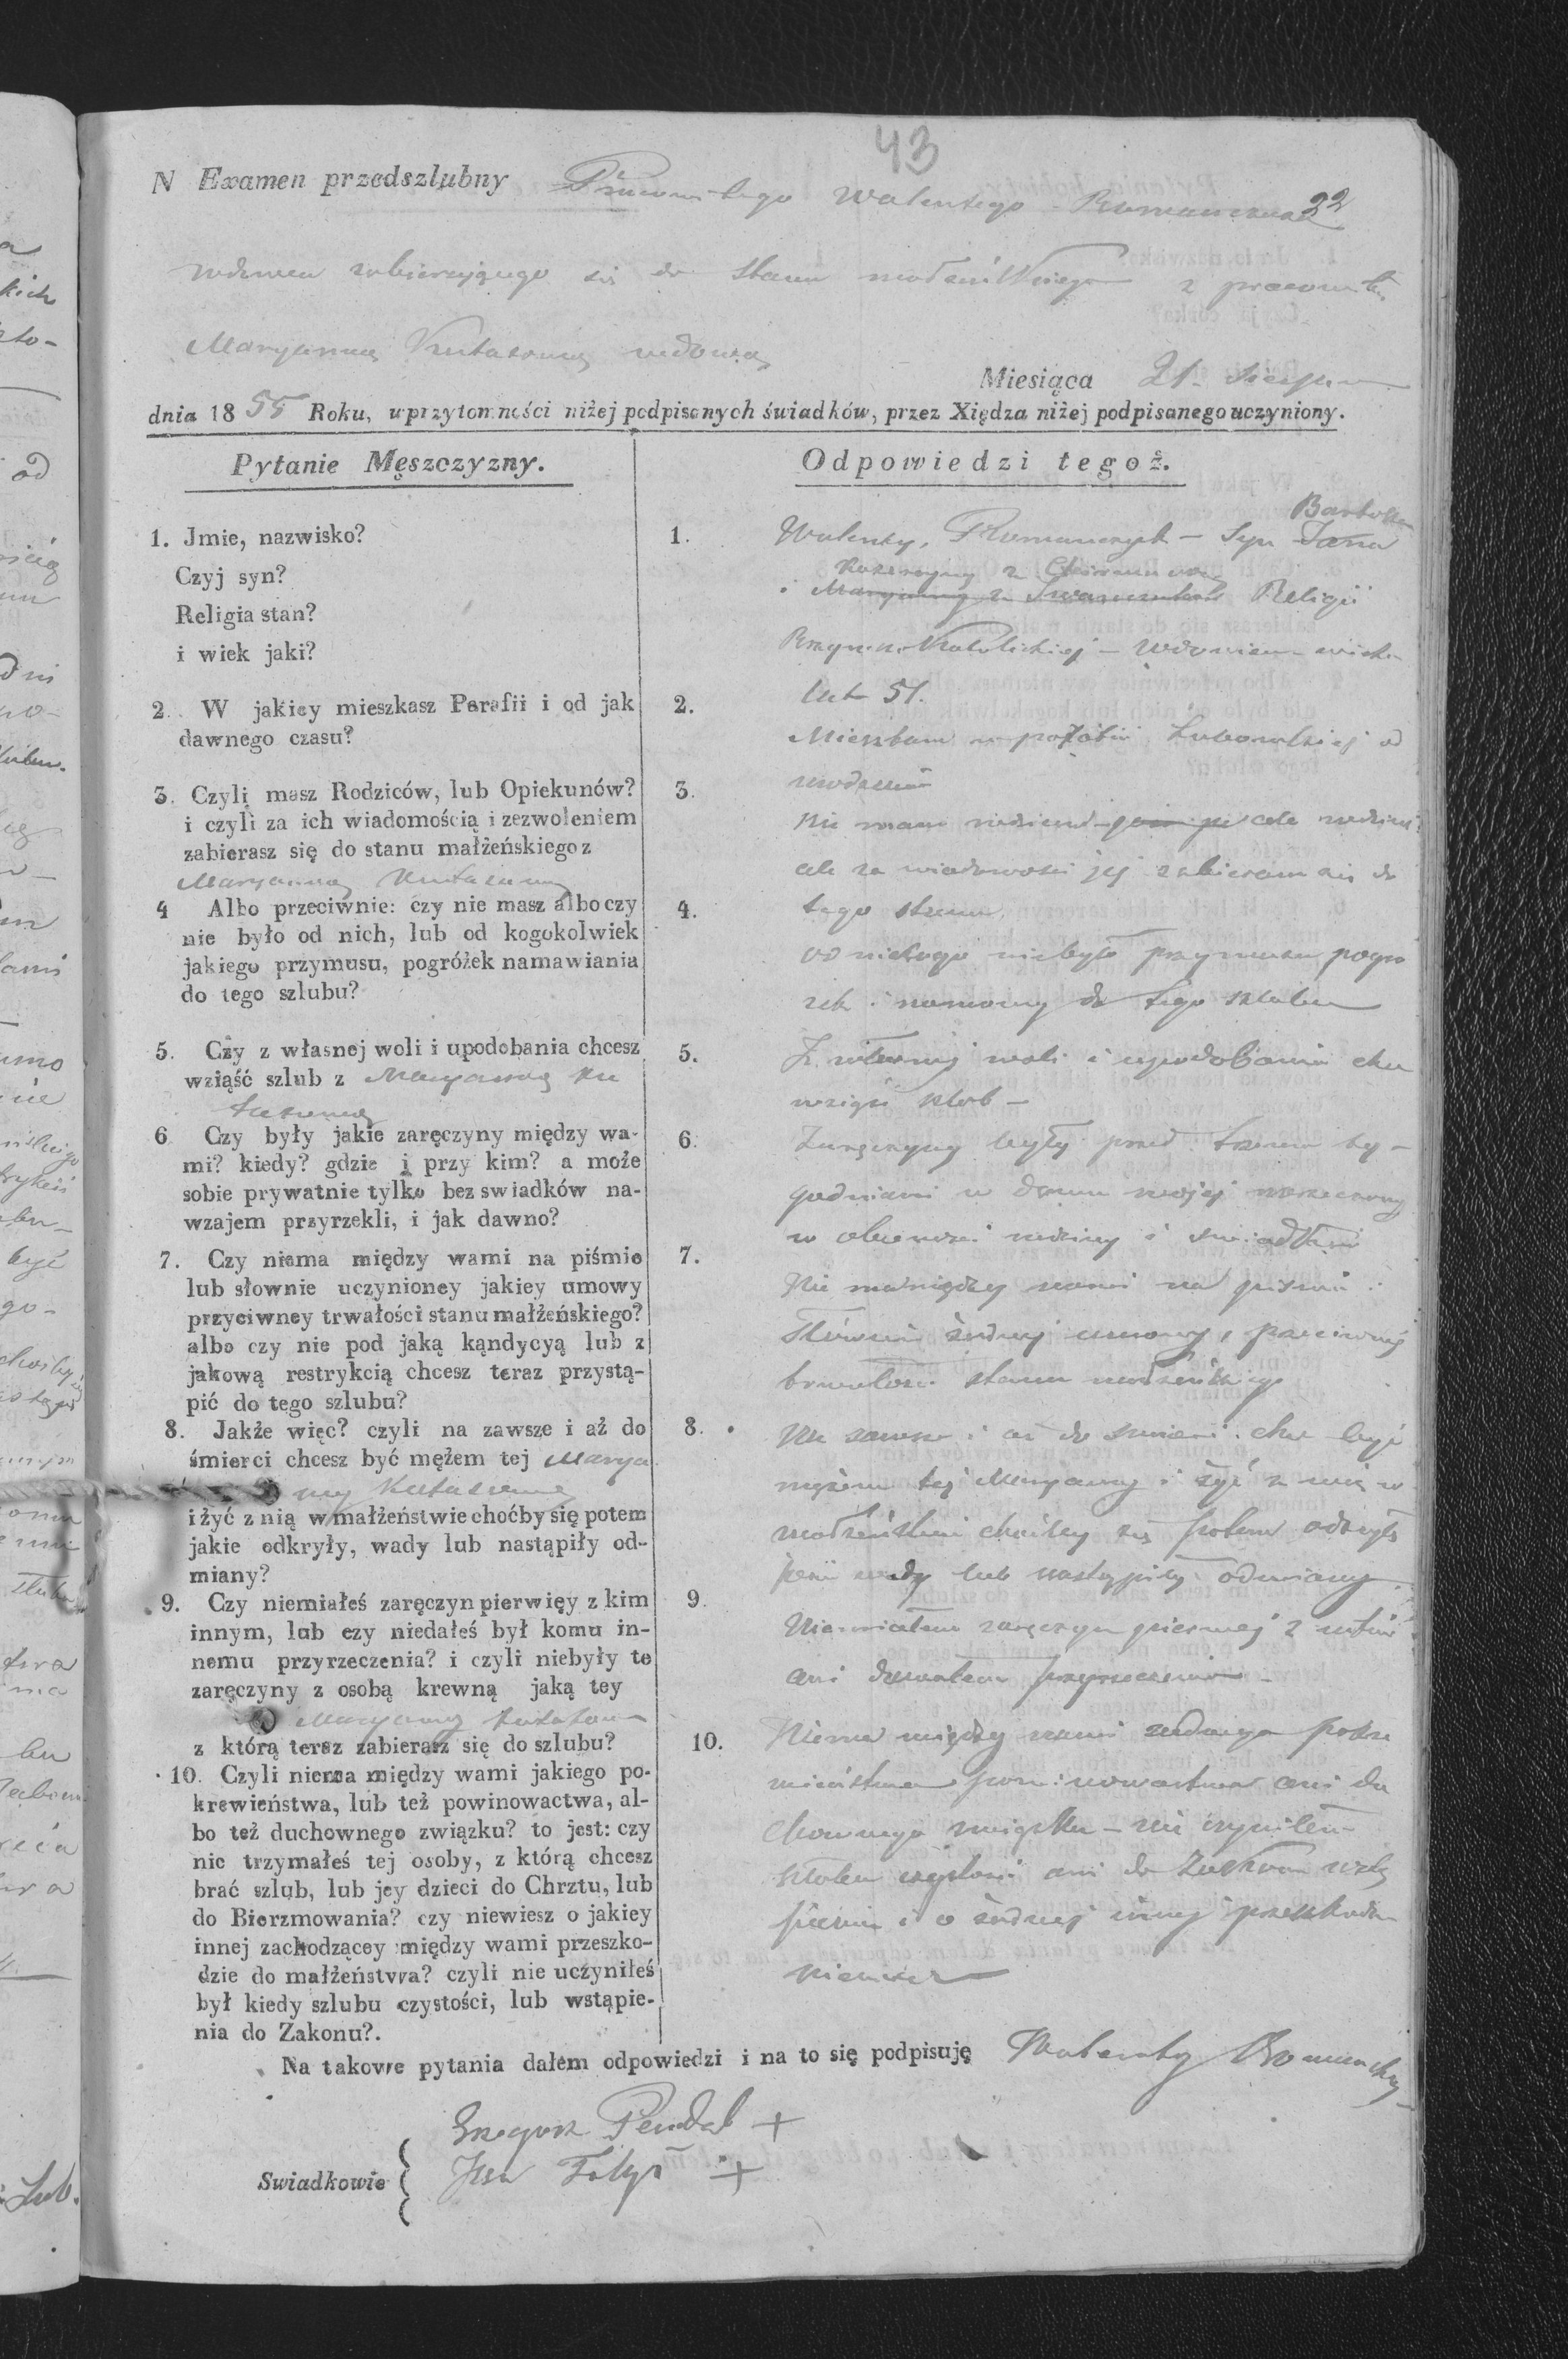 43
N Examen przedszlubny Pracowitego Walentego Romanczuka 32
wdowca zabierającego się do stanu małżeńskiego z pracowitą
Maryanną Kutasową wdową
Miesiąca 21. Sierpnia
dnia 1855 Roku, w przytomności niżej podpisanych świadków, przez Xiędza niżej podpisanego uczyniony.
Pytanie Męszczyzny.
1. Jmie, nazwisko?
Czyj syn?
Religia stan?
i wiek jaki?
2. W jakiey mieszkasz Parafii i od jak
dawnego czasu?
3. Czyli masz Rodziców, lub Opiekunów?
i czyli za ich wiadomością i zezwoleniem
zabierasz się do stanu małżeńskiego z
Maryanną Kutasową
4 Albo przeciwnie: czy nie masz albo czy
nie było od nich, lub od kogokolwiek
jakiego przymusu, pogróżek namawiania
do tego szlubu?
5. Czy z własnej woli i upodobania chcesz
wziąść szlub z Maryanną Ku
tasową
6 Czy były jakie zaręczyny między wa-
mi? kiedy? gdzie i przy kim? a może
sobie prywatnie tylko bez swiadków na-
wzajem przyrzekli, i jak dawno?
7. Czy niema między wami na piśmie
lub słownie uczynioney jakiey umowy
przyciwney trwałości stanu małżeńskiego?
albo czy nie pod jaką kąndycyą lub z
jakową restrykcią chcesz teraz przystą-
pić do tego szlubu?
8. Jakże więc? czyli na zawsze i aż do
śmierci chcesz być mężem tej Marya
nny Kutasowej
i żyć z nią w małżeństwie choćby się potem
jakie odkryły, wady lub nastąpiły od-
miany?
9. Czy niemiałeś zaręczyn pierwięy z kim
innym, lub czy niedałeś był komu in-
nemu przyrzeczenia? i czyli niebyły te
zaręczyny z osobą krewną jaką tey
Maryanny Kutasow
z którą teraz zabierasz się do szlubu?
10. Czyli niema między wami jakiego po-
krewieństwa, lub też powinowactwa, al-
bo też duchownego związku? to jest: czy
nie trzymałeś tej osoby, z którą chcesz
brać szlub, lub jey dzieci do Chrztu, lub
do Bierzmowania? czy niewiesz o jakiey
innej zachodzącey między wami przeszko-
dzie do małżeństwa? czyli nie uczyniłeś
był kiedy szlubu czystości, lub wstąpie-
nia do Zakonu?.
Odpowiedzi tegoż.
Bartosza
1. Walenty, Romanczuk – Syn Jana
i Maryanny z Religii
Rzymsko Katolickiej – Wdowiec wieku
2. lat 51.
Mieszkam w parafii od
3. urodzenia
Nie mam rodziców
ale za wiadomością jej zabieram się do
4. tego stanu
od nikogo niebyło przymusu pogró
żek i namowy do tego szlubu
5. Z własnej woli i upodobania chcę
wziąść szlub –
6. Zaręczyny były przed trzema ty-
godniami w domu mojej narzeczony
w obecności rodziny i świadków
7. Nie ma między nami na piśmie i
słownie żadnej umowy, przeciwnej
trwałości stanu małżeńskiego
8. Na zawsze i aż do śmierci chcę być
mężem tej Maryanny i żyć z nią w
małżeństwie choćby się potem odkryły
wady lub nastąpiły odmiany
9. Niemiałem zaręczyn pierwej z nikim
ani dawałem przyrzeczenia –
10. Niema między nami żadnego pokre
wieństwa powinowactwa ani du
chownego związku – nie czyniłem
szlubu czystości ani do Zakonu wstą
pienia i o żadnej innej przeszkodzie
niewiem
Na takowe pytania dałem odpowiedzi i na to się podpisuję Walenty Romanczuk
Swiadkowie
Grzegorz Pendal +
Jan Fołys +